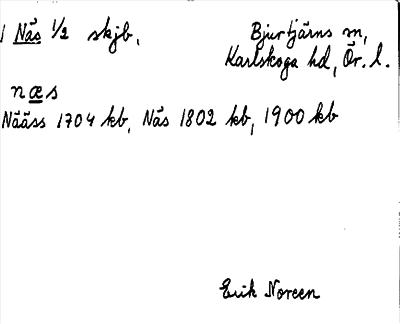 1 Näs ½ skjb.
Bjurtjärns sn,
Karlskoga hd, Ör. l.
næs
Nääss 1704 kb, Näs 1802 kb, 1900 kb
Erik Noreen